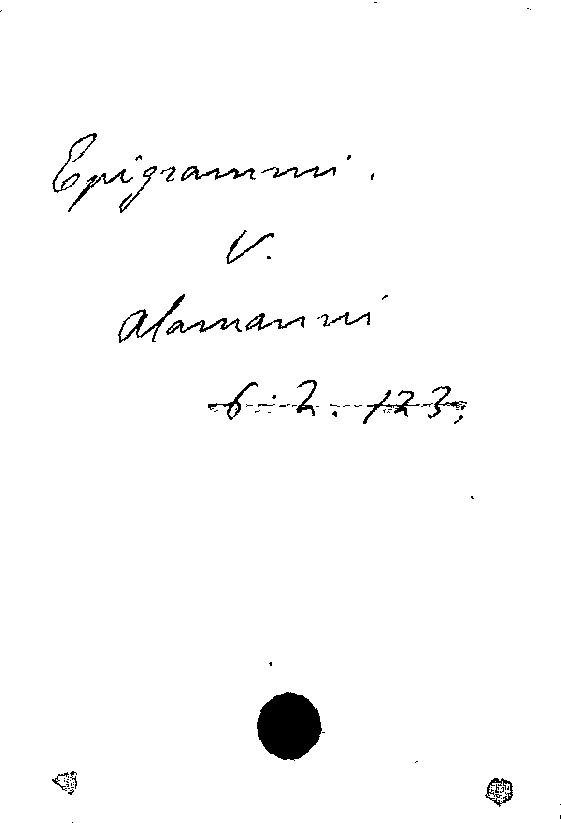 Epigrammi.
V.
Alamanni
6. 2. 123.